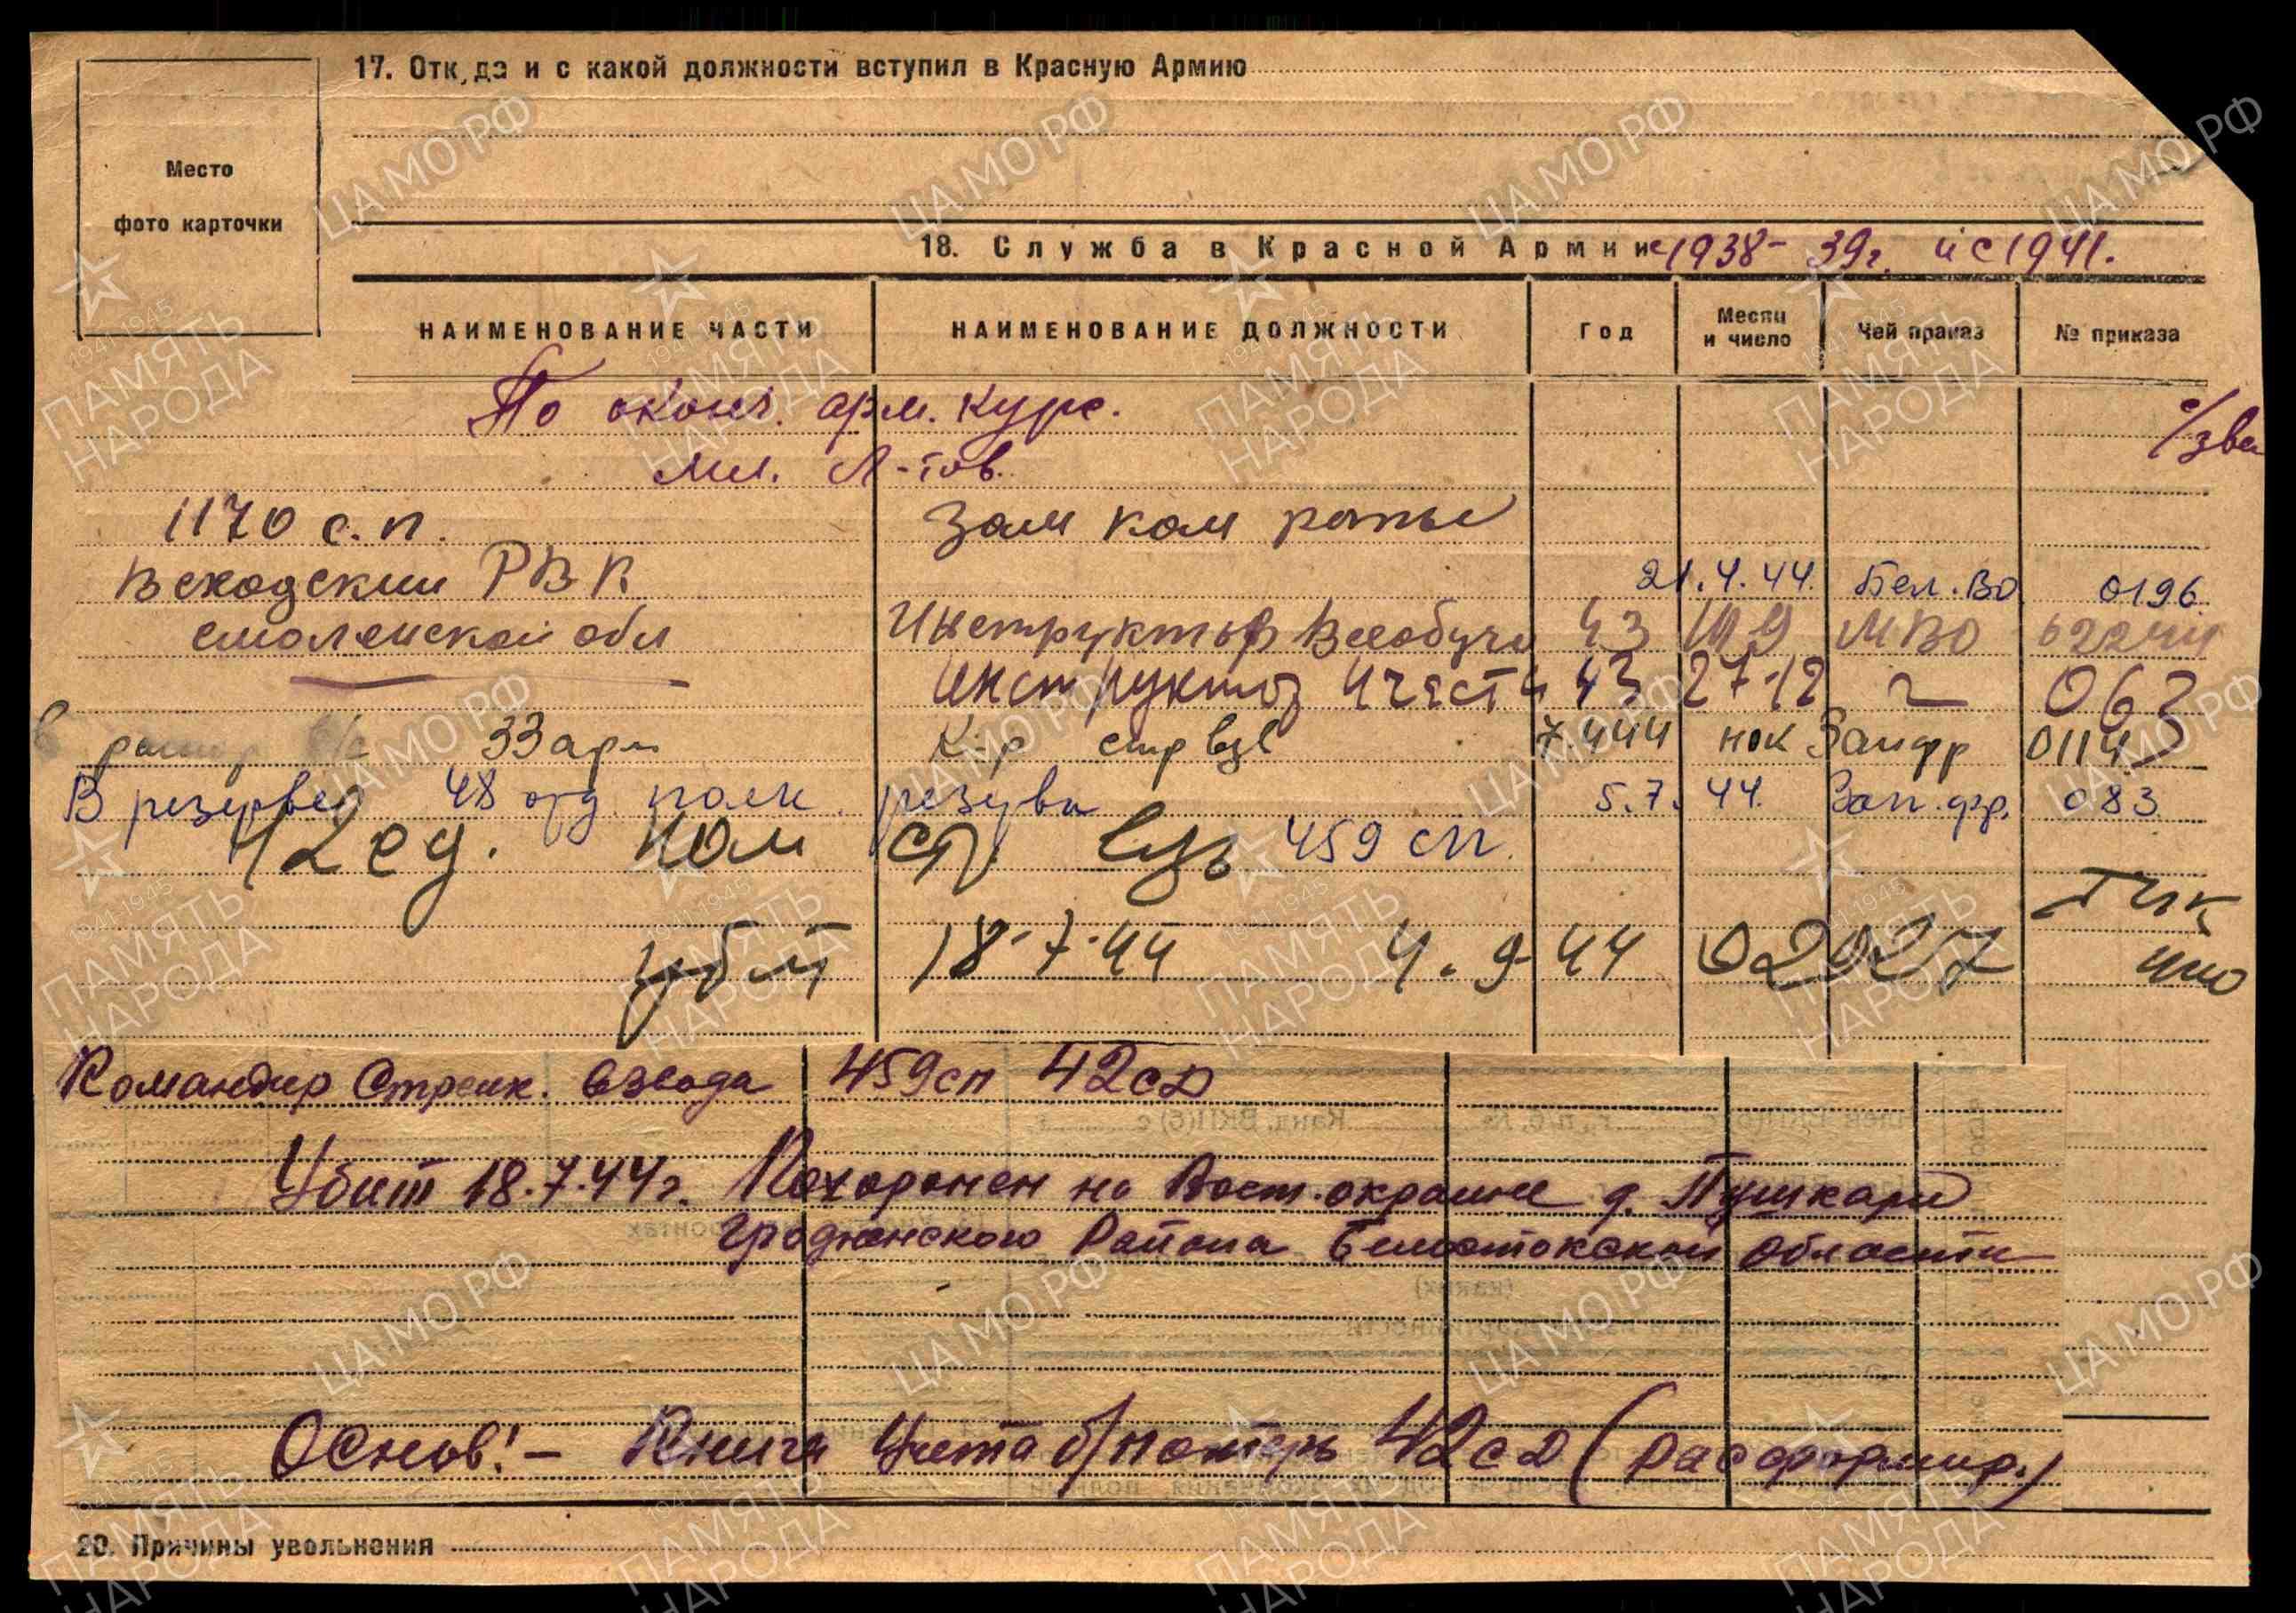 17. Отк,да и с какой должности вступил в Красную Армию
Место
фото карточки
18. Служба в Красной Армии с 1938 - 39г. и с 1941.
НАИМЕНОВАНИЕ ЧАСТИ НАИМЕНОВАНИЕ ДОЛЖНОСТИ Год Месяц и число Чей приказ № приказа
По оконч. арм. курс.
мл. л-тов.
1170 с.п. Зам ком роты
Всходский РВК 21.4.44. Бел. ВО 0196
Смоленской обл Инструктор Всеобуча 43 МВО
инструктор 1 части 43 27.12 067
в 33 арм К-р стр взв 7.4.44 нок Запфр 0114
В резерве 48 отд. полк. резерва 5.7.44. Зап.фр. 083
42 сд. ком стр взв 459 сп.
убит 18.7.44 4.9 44 02027
Командир Стрелк. взвода 459сп 42сд
Убит 18.7.44г. Похоронен на Вост. окраине д. Пушкари
Гродненского Района Белостокской области
Основ!- Книга учета б/потерь 42сд (расформир.)
20. Причины увольнения
ЦАМО РФ
1941-1945
ПАМЯТЬ
НАРОДА